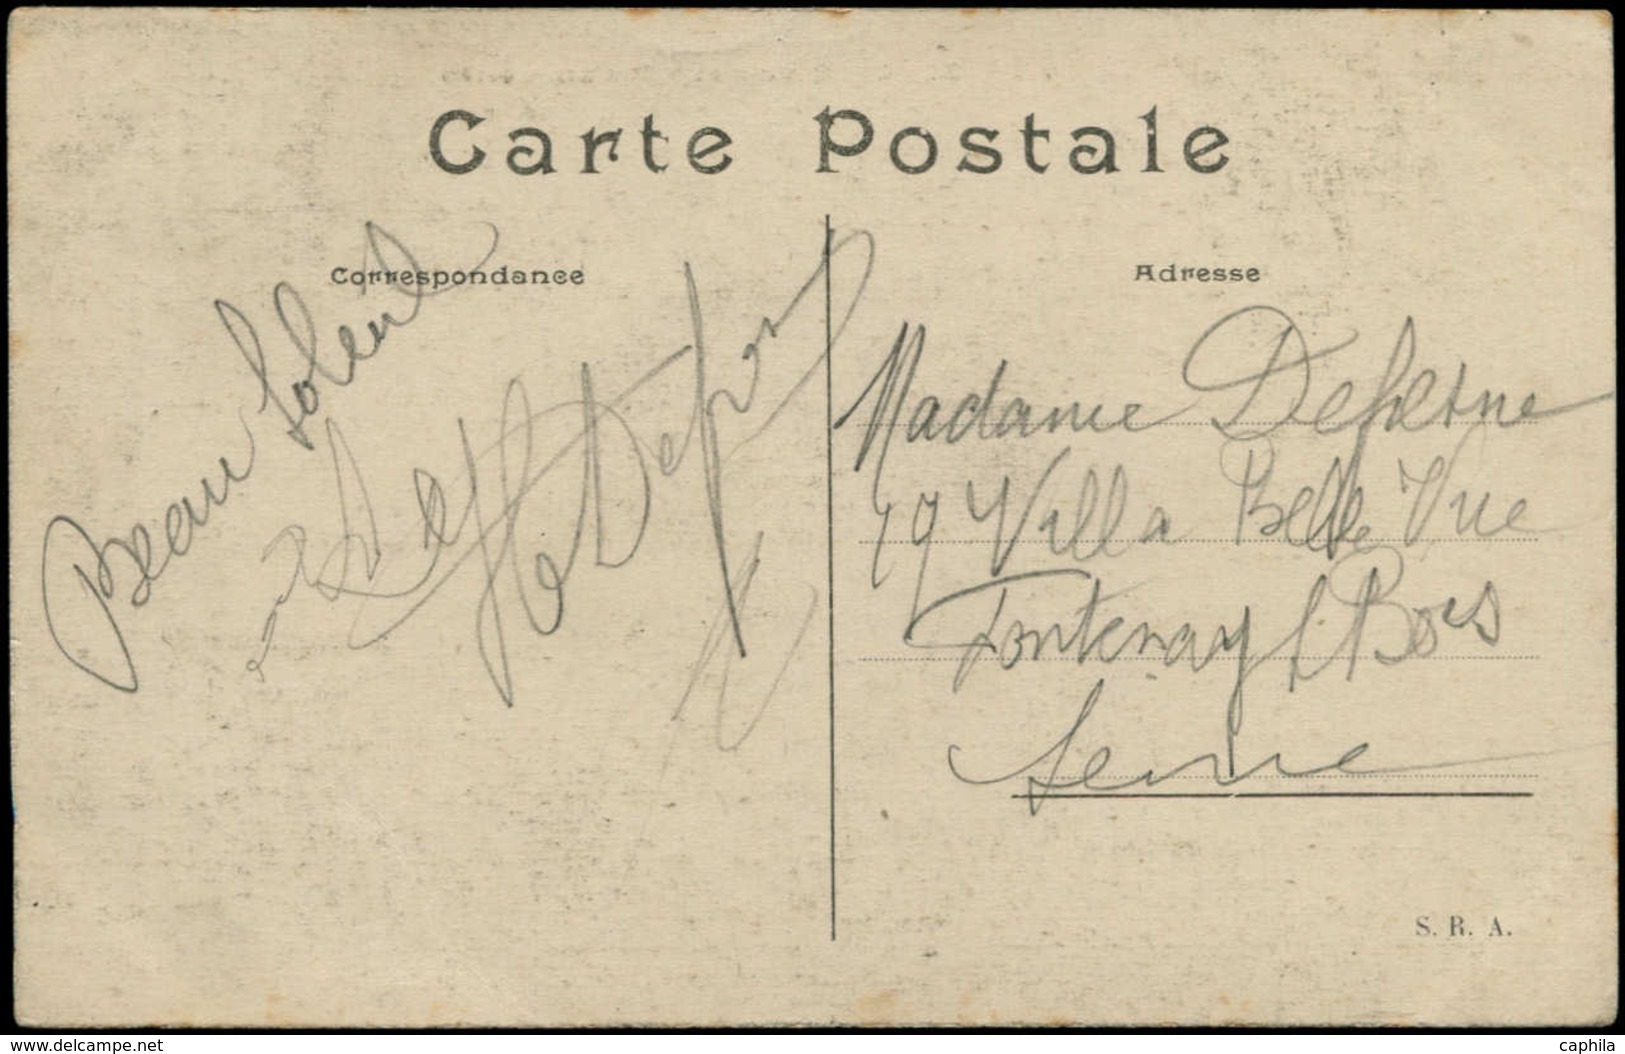 Carte Postale
Correspondance
Beau Soleil
Adresse
Madame Defresne
49 Villa Belle Vue
Fontenay s Bois
Seine
S. R. A.
www.delcampe.net
caphila